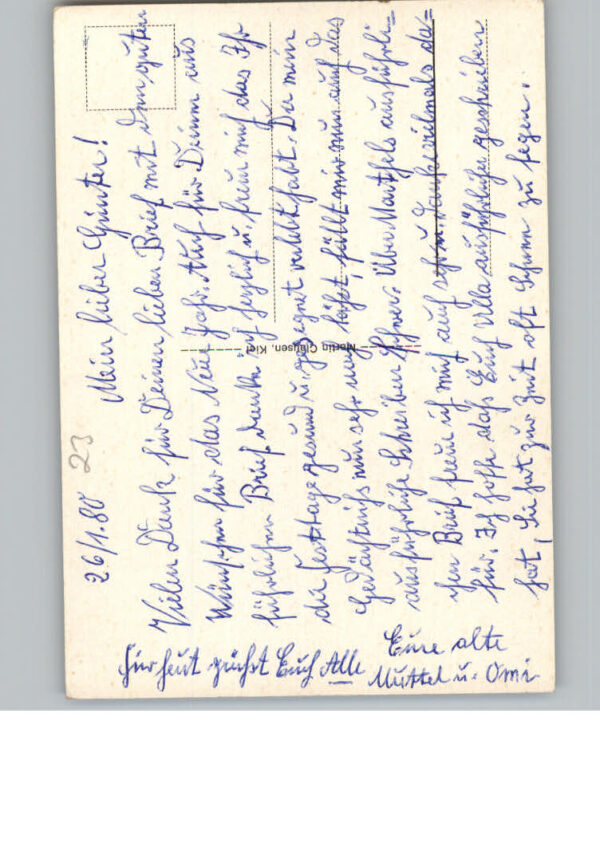 26/1. 80 23
Mein lieber Günter!
Vielen Dank für Deinen lieben Brief mit den guten
Wünschen für das Neue Jahr. Auch für Deinen aus
führlichen Brief danke ich herzlich u. freue mich das Ihr
die Festtage gesund u. gesegnet verlebt habt. Da mein
Gedächtniß nun sehr nachläßt, fällt mir nun auch das
ausführliche Schreiben schwer. Über Matthels ausführli=
chen Brief freue ich mich auch sehr u. danke vielmals da=
für. Ich hoffe daß Euch Ulla ausführlicher geschrieben
hat, sie hat zur Zeit oft Schnee zu fegen.
Für heut grüßt Euch Alle Eure alte
Muttel u. Omi
Martin Clausen, Kiel